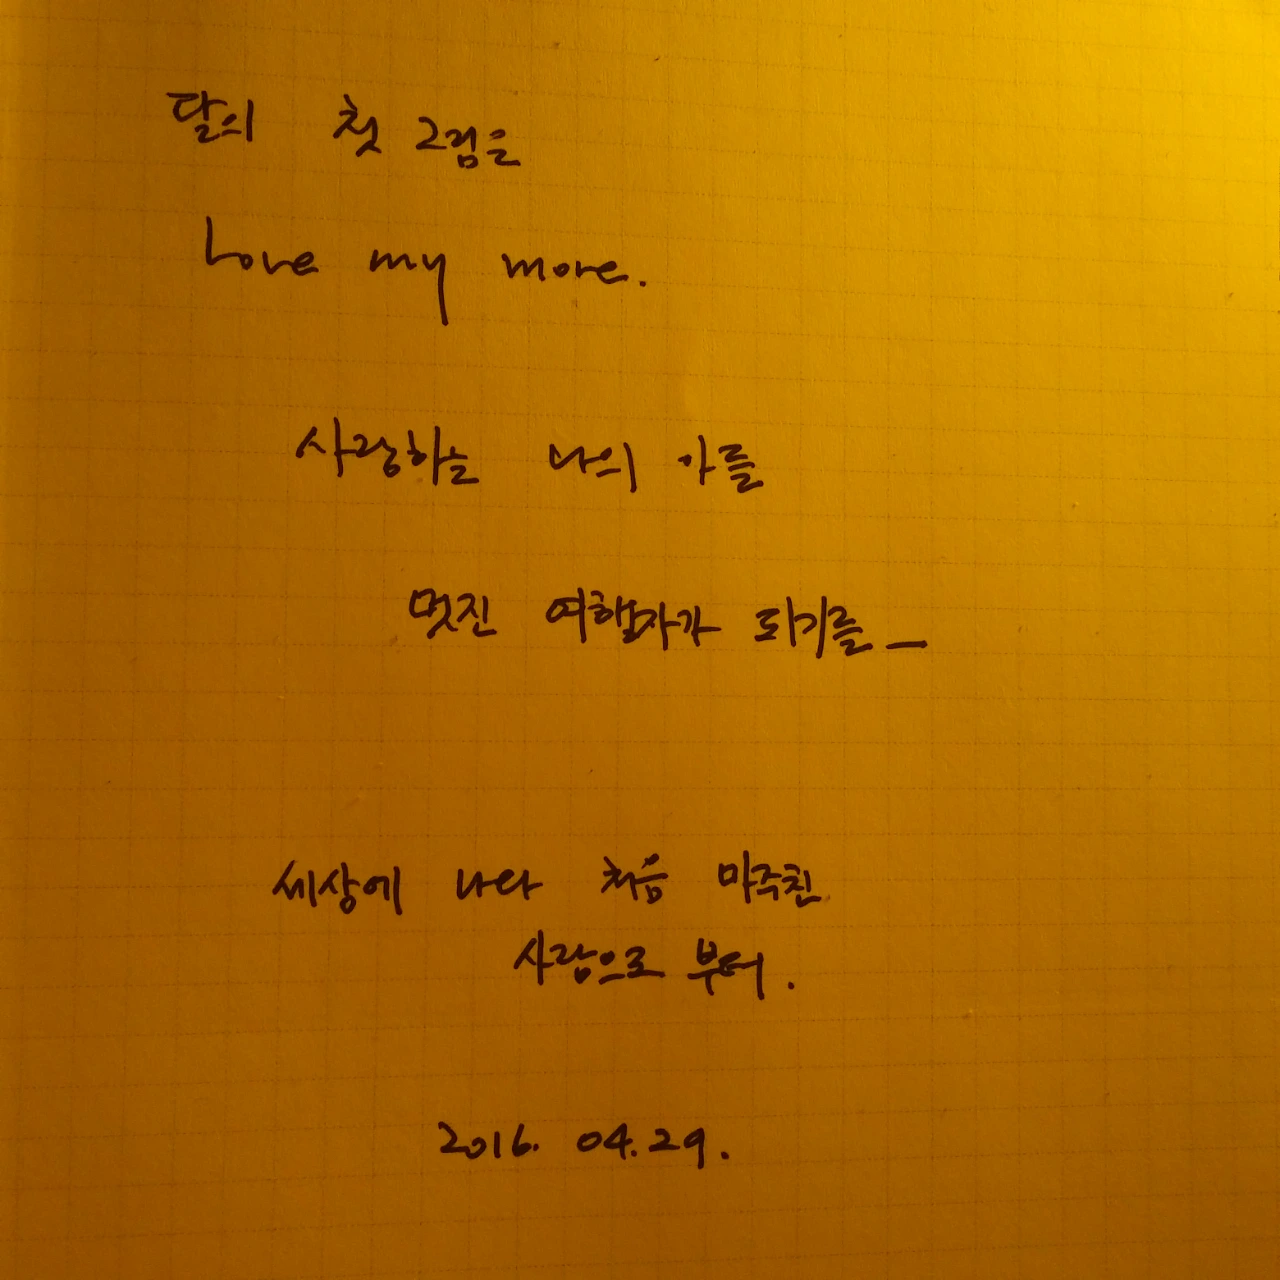 달의 첫 그림은
Love my more.
사랑하는 나의 아들
멋진 여행자가 되기를_
세상에 나와 처음 마주친
사람으로 부터.
2016. 04. 29.